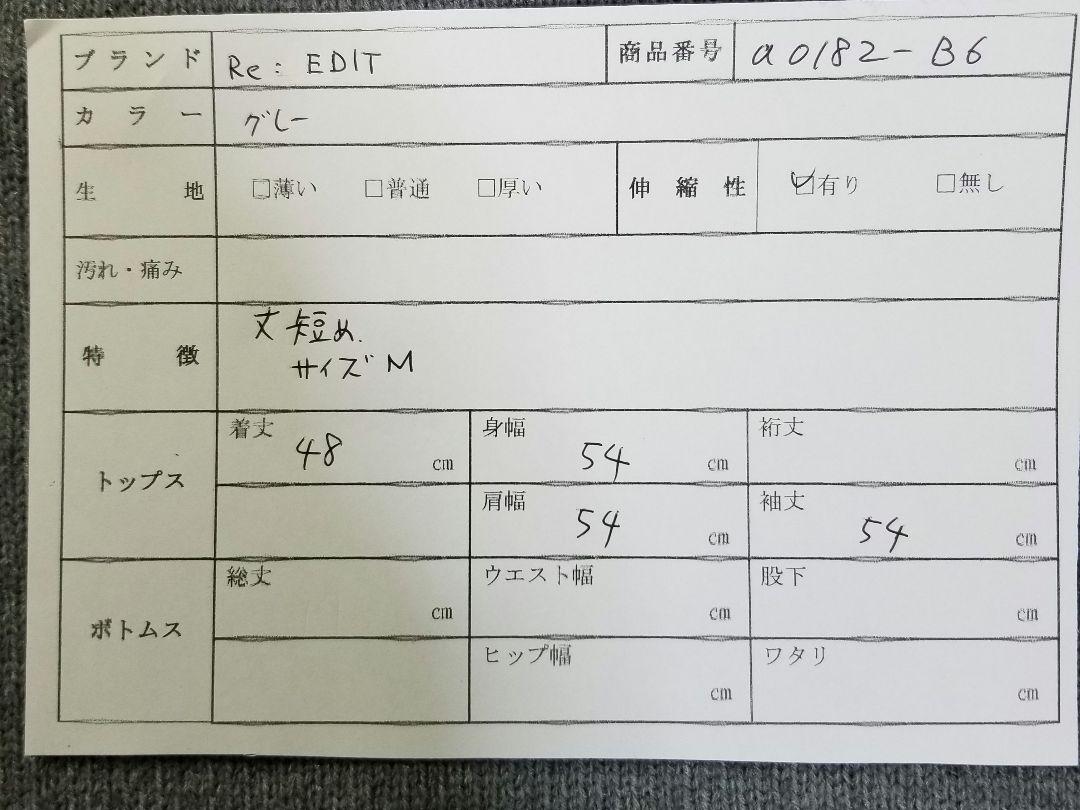 ブランド Re: EDIT 商品番号 a0182-B6
カラー グレー
生地 □薄い □普通 □厚い 伸縮性 ☑有り □無し
汚れ・痛み
特徴 丈短め.
サイズM
トップス
着丈 48 cm 身幅 54 cm 裄丈 cm
肩幅 54 cm 袖丈 54 cm
ボトムス
総丈 cm ウエスト幅 cm 股下 cm
ヒップ幅 cm ワタリ cm